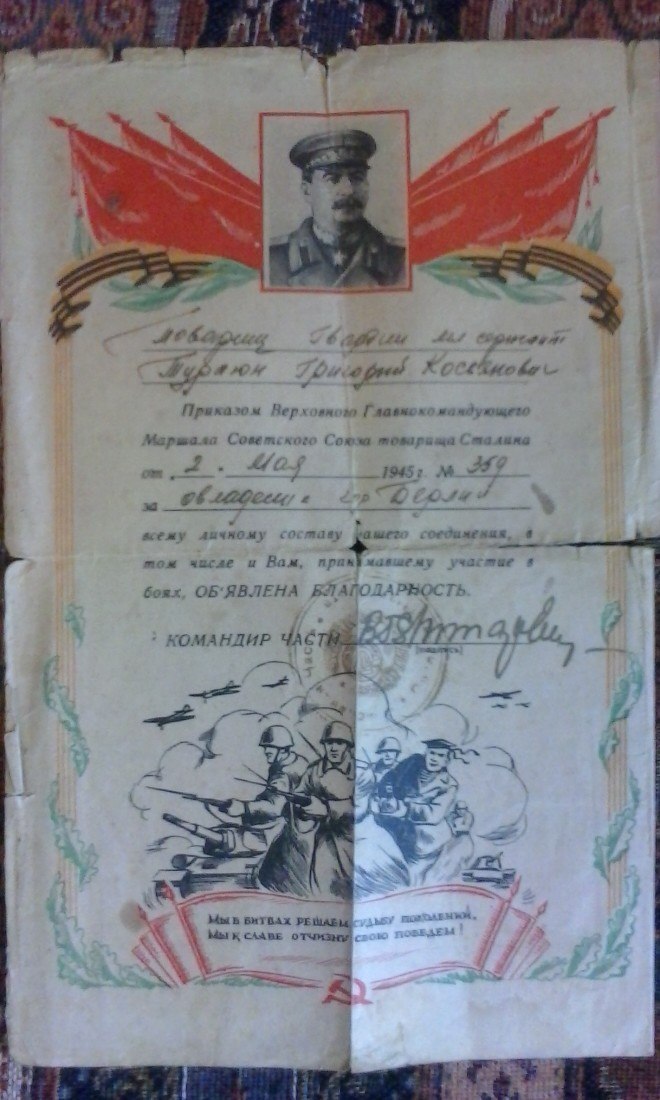 товарищ Гвардии мл сержант
Григорий
Приказом Верховного Главнокомандующего
Маршала Советского Союза товарища Сталина
от 2. Мая 1945 г. № 359
за овладение гор Берлин
всему личному составу нашего соединения, в
том числе и Вам, принимавшему участие в
боях, ОБ'ЯВЛЕНА БЛАГОДАРНОСТЬ.
КОМАНДИР ЧАСТИ
(подпись)
МЫ В БИТВАХ РЕШАЕМ СУДЬБУ ПОКОЛЕНИЙ,
МЫ К СЛАВЕ ОТЧИЗНУ СВОЮ ПОВЕДЕМ!